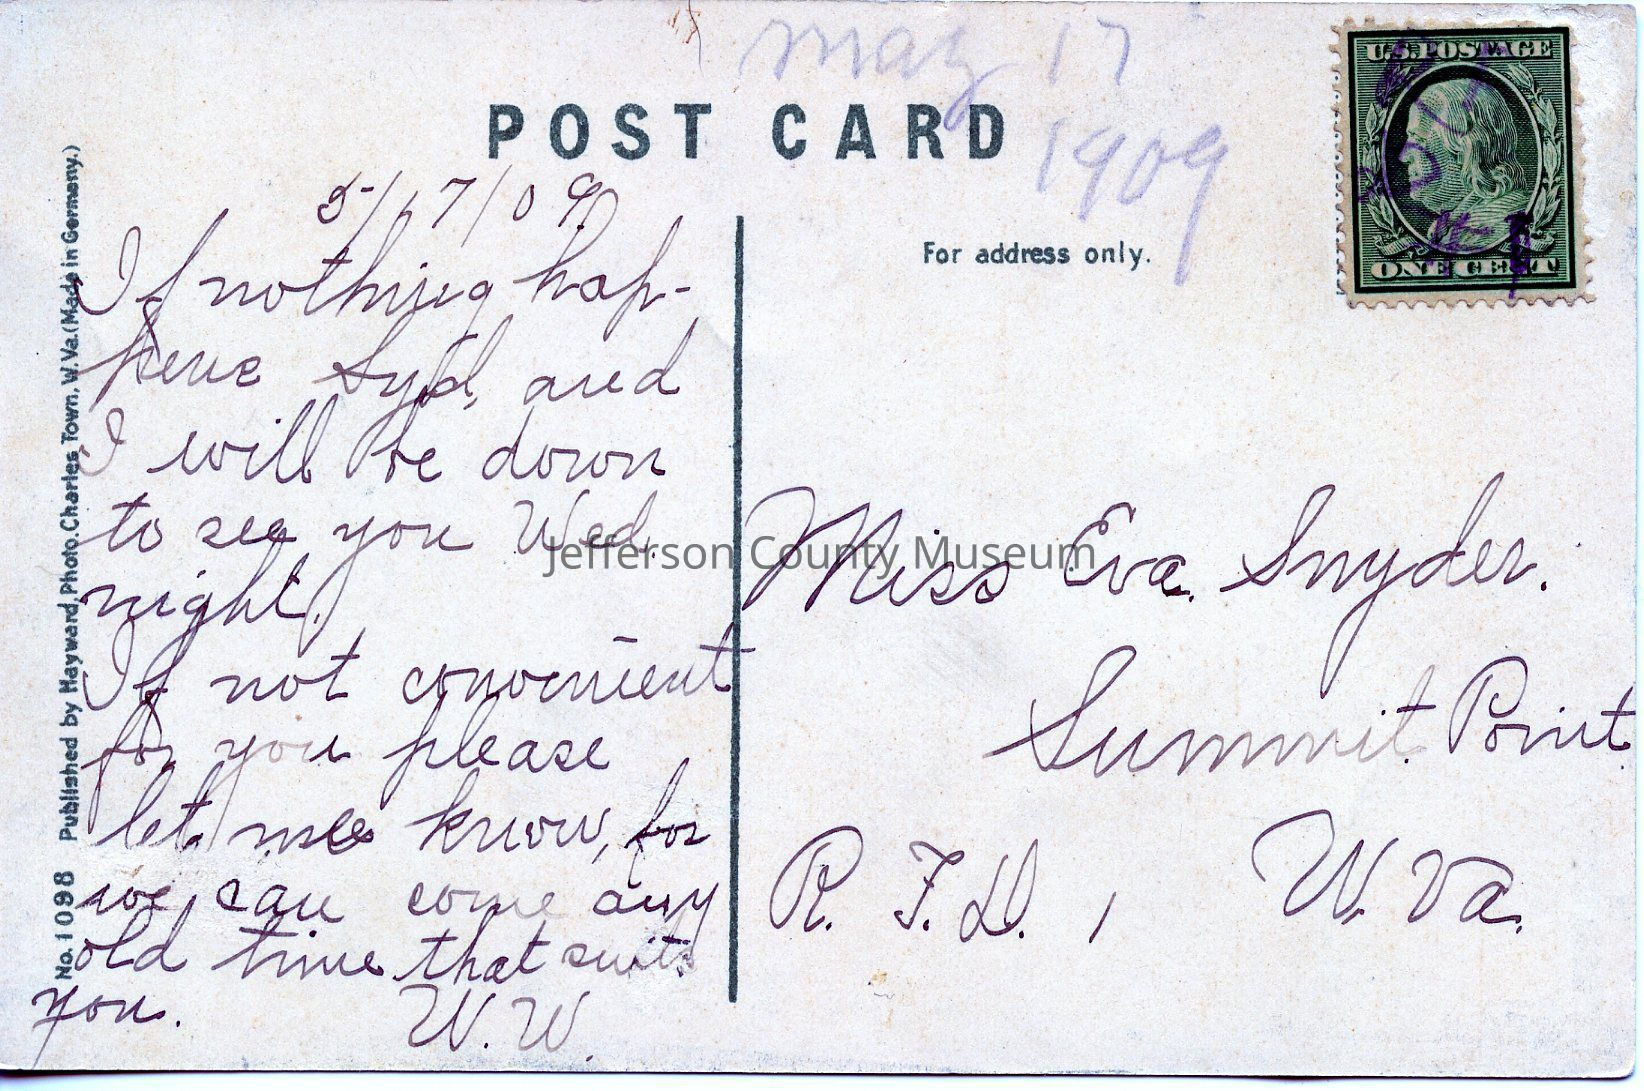 May 17
1909
POST CARD
For address only.
U.S. POSTAGE
ONE CENT
No. 1098 Published by Hayward, Photo. Charles Town, W. Va. (Made in Germany.)
5/17/09
If nothing hap-
pens Syd, and
I will be down
to see you Wed.
night.
If not convenient
for you please
let me know, for
we can come any
old time that suits
you. W. W.
Miss Eva Snyder.
Summit Point
R. F. D. 1 W. Va.
Jefferson County Museum